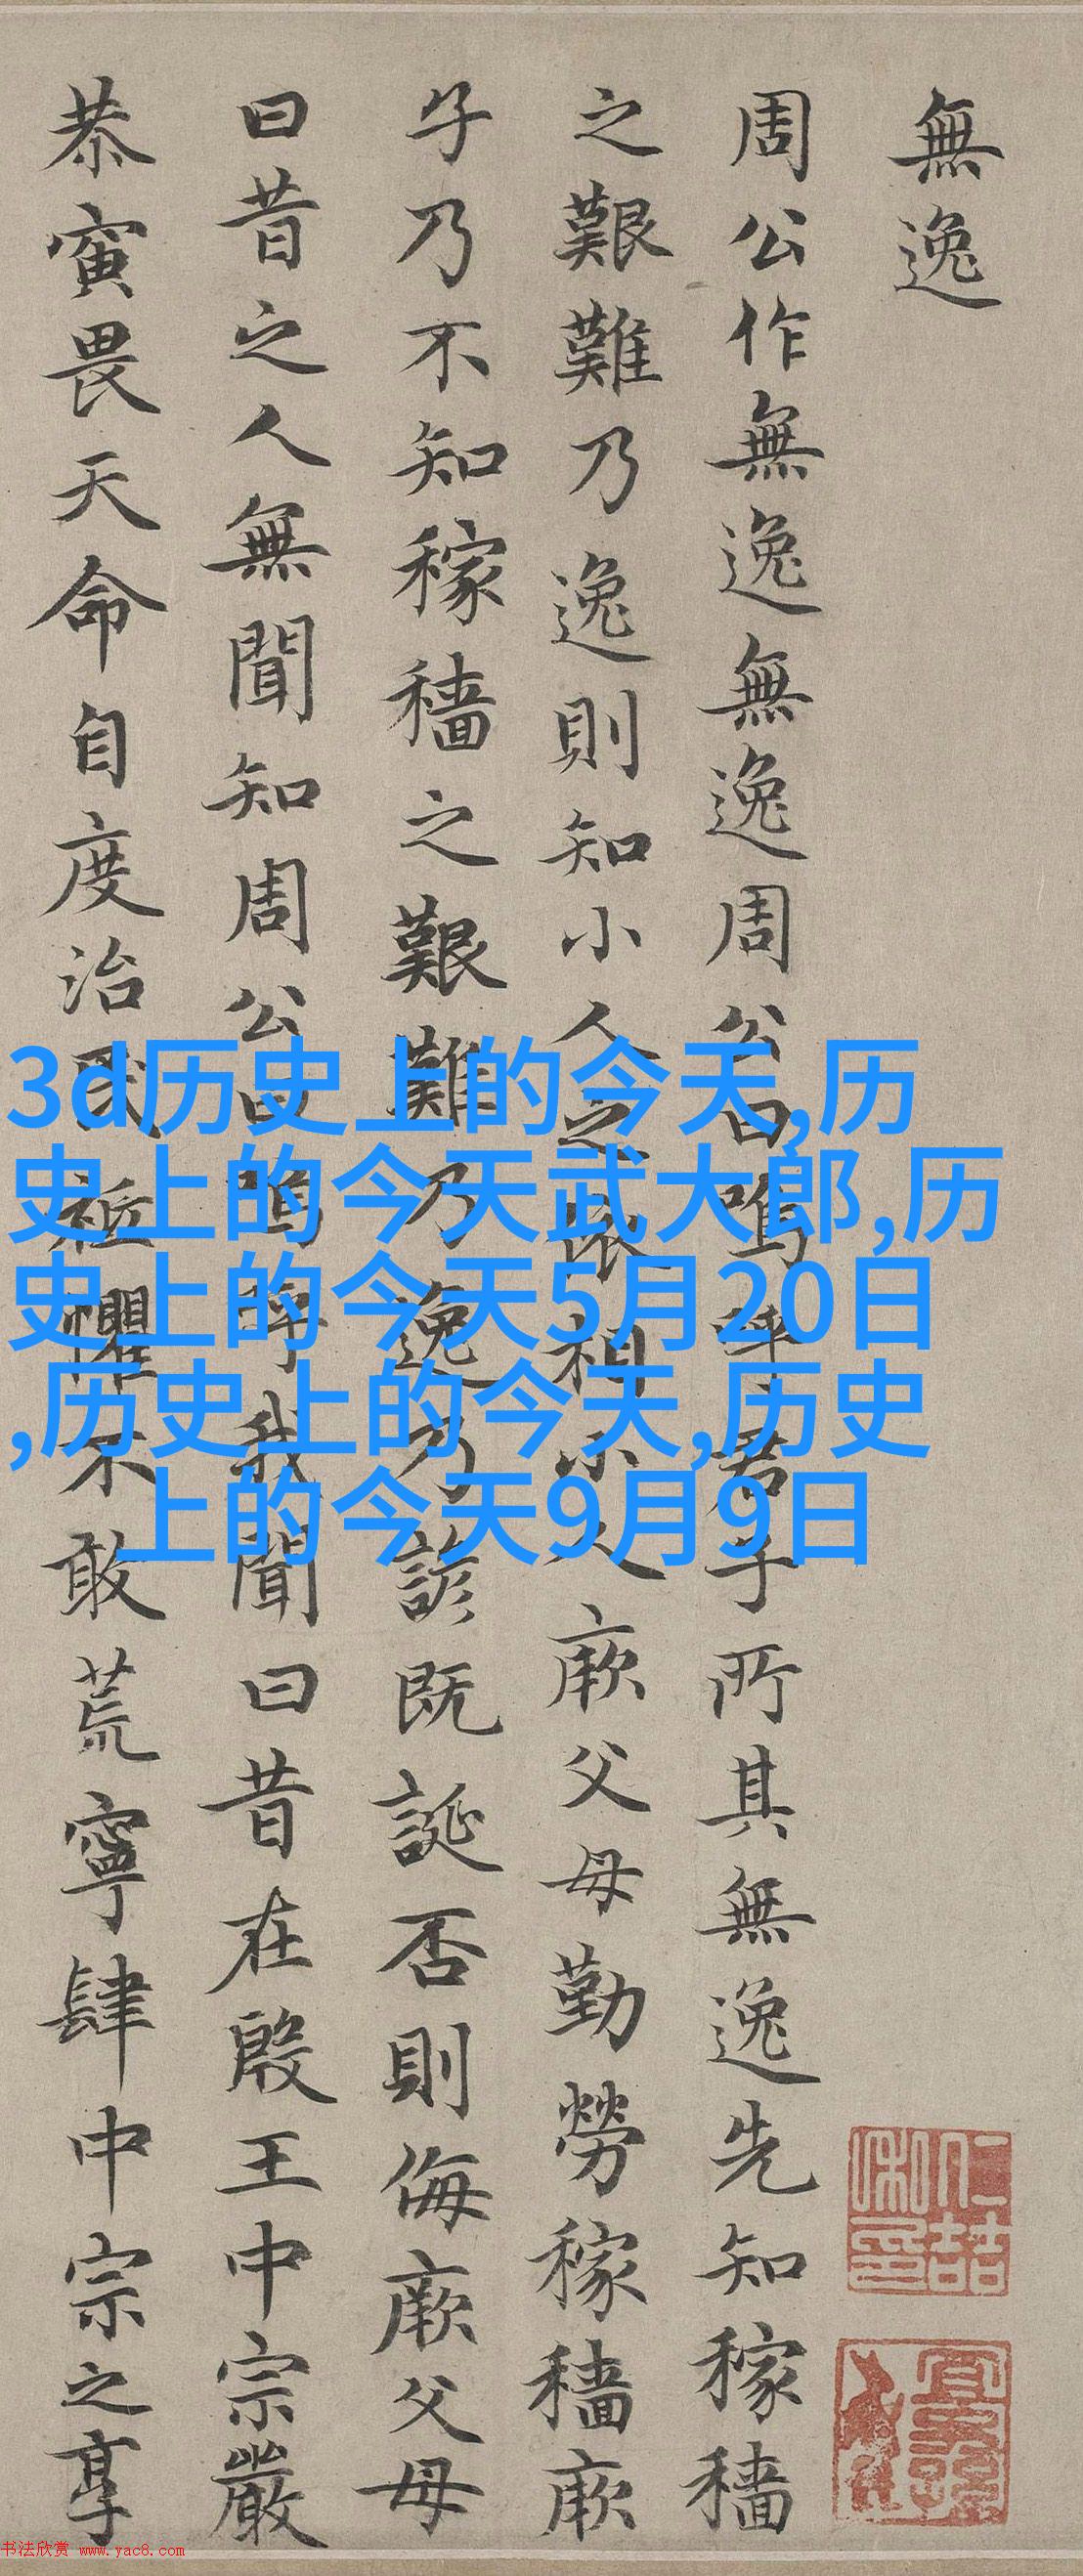 無逸
周公作無逸無逸周公曰嗚呼君子所其無逸先知稼穡
之艱難乃逸則知小人之依相小人厥父母勤勞稼穡厥
子乃不知稼穡之艱難乃逸乃諺既誕否則侮厥父母
曰昔之人無聞知周公曰嗚呼我聞曰昔在殷王中宗嚴
恭寅畏天命自度治民祗懼不敢荒寧肆中宗之享
3d历史上的今天,历
史上的今天武大郎,历
史上的今天5月20日
,历史上的今天,历史
上的今天9月9日
书法欣赏 www.yac8.com